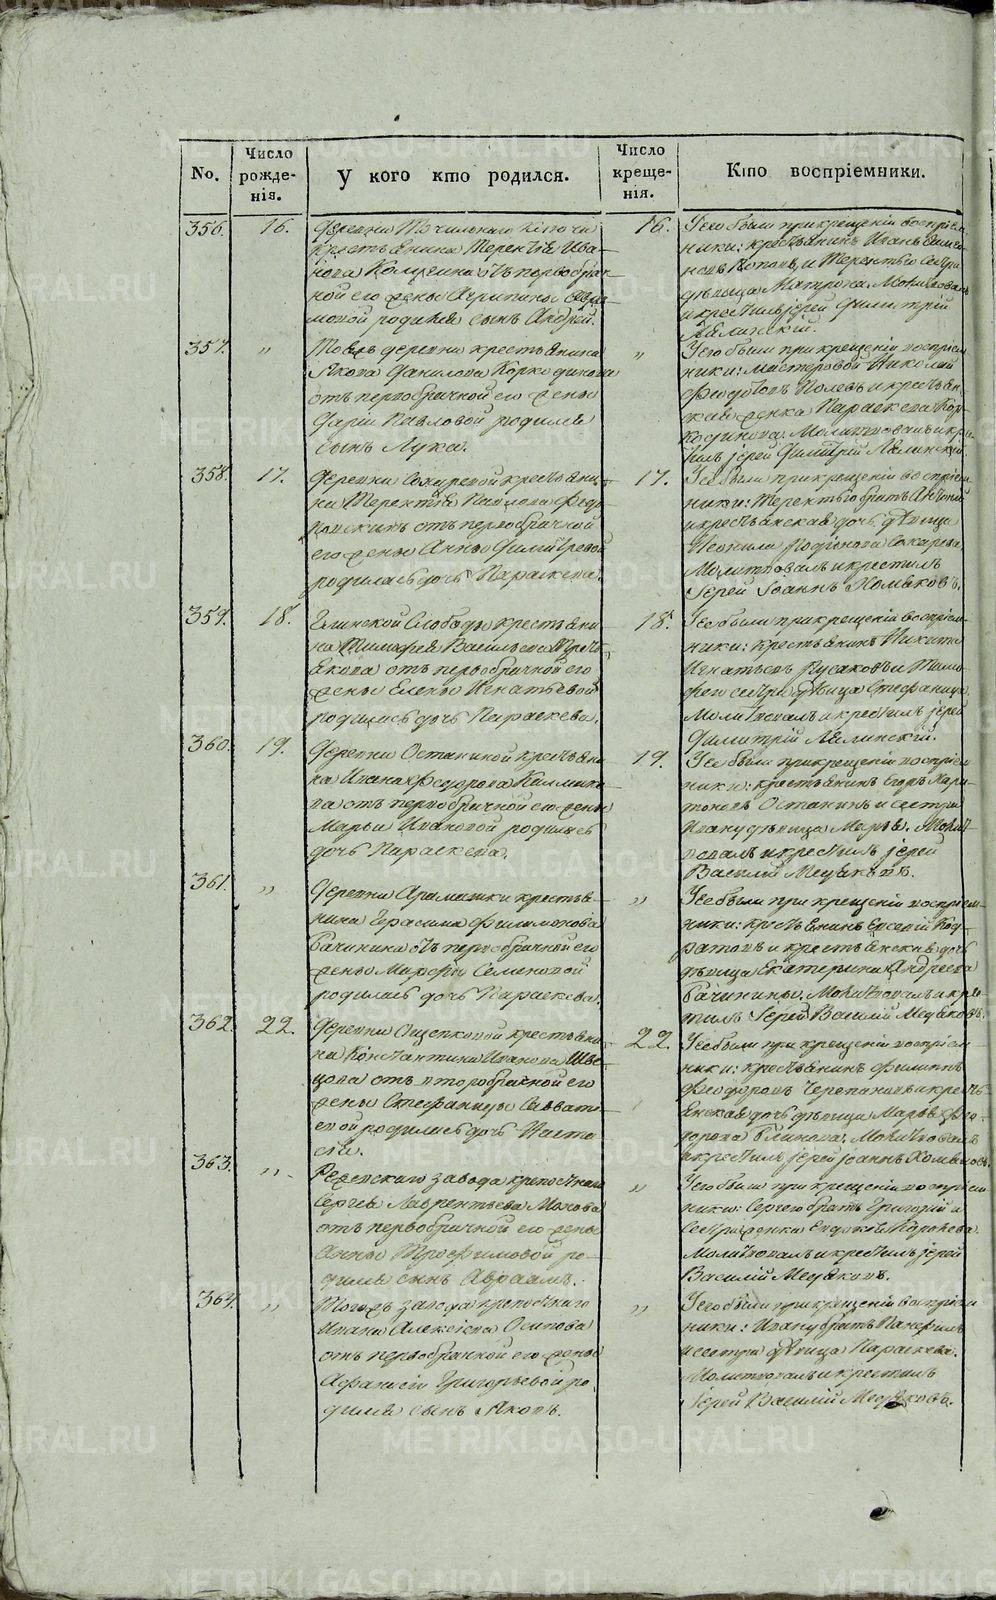 No.
Число рожде-
нія.
У кого кто родился.
Число креще-
нія.
Кто воспріемники.
356.
16.
Деревни Точильнаго Ключа
крестьянина Терентія Ива-
нова отъ первобрач-
ной его жены
родился сынъ Андрей.
16.
У сего были при крещеніи воспріем-
ники: крестьянинъ Иванъ
Поповъ и Терентью сестра
дѣвица Матрона. Молитвовалъ
и крестилъ іерей Димитрій
Лялинскій.
357.
"
Тояжъ деревни крестьянина
Якова Данилова Коркодинова
отъ первобрачной его жены
Дарьи Павловой родился
сынъ Лука.
"
У сего были при крещеніи воспріем-
ники: мастеровой Николай
Феодотовъ Полевъ и крестьян-
ская женка Параскева Кор-
кодинова. Молитвовалъ и кре-
тилъ іерей Димитрій Лялинскій.
358.
17.
Деревни крестьяни-
на Терентія Павлова
отъ первобрачной
его жены Анны Димитріевой
родилась дочь Параскева.
17.
У сей были при крещеніи воспріем-
ники: Терентью братъ
и крестьянская дочь дѣвица
Неонила
Молитвовалъ и крестилъ
Іерей Іоаннъ Хомяковъ.
359.
18.
Слободы крестьяни-
на Тимофея Васильева
отъ первобрачной его
жены Елены Игнатьевой
родилась дочь Параскева.
18.
У сей были при крещеніи воспріем-
ники: крестьянинъ Никита
Игнатьевъ Русаковъ и Тимо-
фею сестра дѣвица Стефанида.
Молитвовалъ и крестилъ іерей
Димитрій Лялинскій.
360.
19.
Деревни Останиной крестьяни-
на Ивана Федорова
отъ первобрачной его жены
Марьи Ивановой родилась
дочь Параскева.
19.
У сей были при крещеніи воспріем-
ники: крестьянинъ Егоръ Хари-
тоновъ Останинъ и сестра
Ивану дѣвица Марья. Молит-
вовалъ и крестилъ іерей
Василій Медяковъ.
361.
"
Деревни Арамашки крестья-
нина Герасима Филимонова
Бачинина отъ первобрачной его
жены Марфы Семеновой
родилась дочь Параскева.
"
У сей были при крещеніи воспріем-
ники: крестьянинъ
и крестьянская дочь
дѣвица Екатерина Андреева
Бачинины. Молитвовалъ и кре-
тилъ Іерей Василій Медяковъ.
362.
22.
Деревни Ощепковой крестьяни-
на Константина Иванова Шве-
цова отъ второбрачной его
жены Стефаниды Савватее-
вой родилась дочь Наста-
сія.
22.
У сей были при крещеніи воспріем-
ники: крестьянинъ Филиппъ
Феодоровъ Черепановъ и кресть-
янская дочь дѣвица Марья Фео-
дорова Блинова. Молитвовалъ
и крестилъ іерей Іоаннъ Хомяковъ.
363.
"
Режевскаго завода крепостнаго
Сергея Лаврентьева
отъ первобрачной его жены
Анны Трофимовой ро-
дился сынъ Авраамъ.
"
У сего были при крещеніи воспріем-
ники: Сергею братъ Григорій и
женка Евдокія
Молитвовалъ и крестилъ іерей
Василій Медяковъ.
364.
"
Тогожъ завода крепостнаго
Ивана Алексѣева Осипова
отъ первобрачной его жены
Афанасіи Григорьевой ро-
дился сынъ Яковъ.
"
У сего были при крещеніи воспріем-
ники: Ивану братъ Панфилъ
и сестра дѣвица Параскева.
Молитвовалъ и крестилъ
Іерей Василій Медяковъ.
METRIKI.GASO-URAL.RU